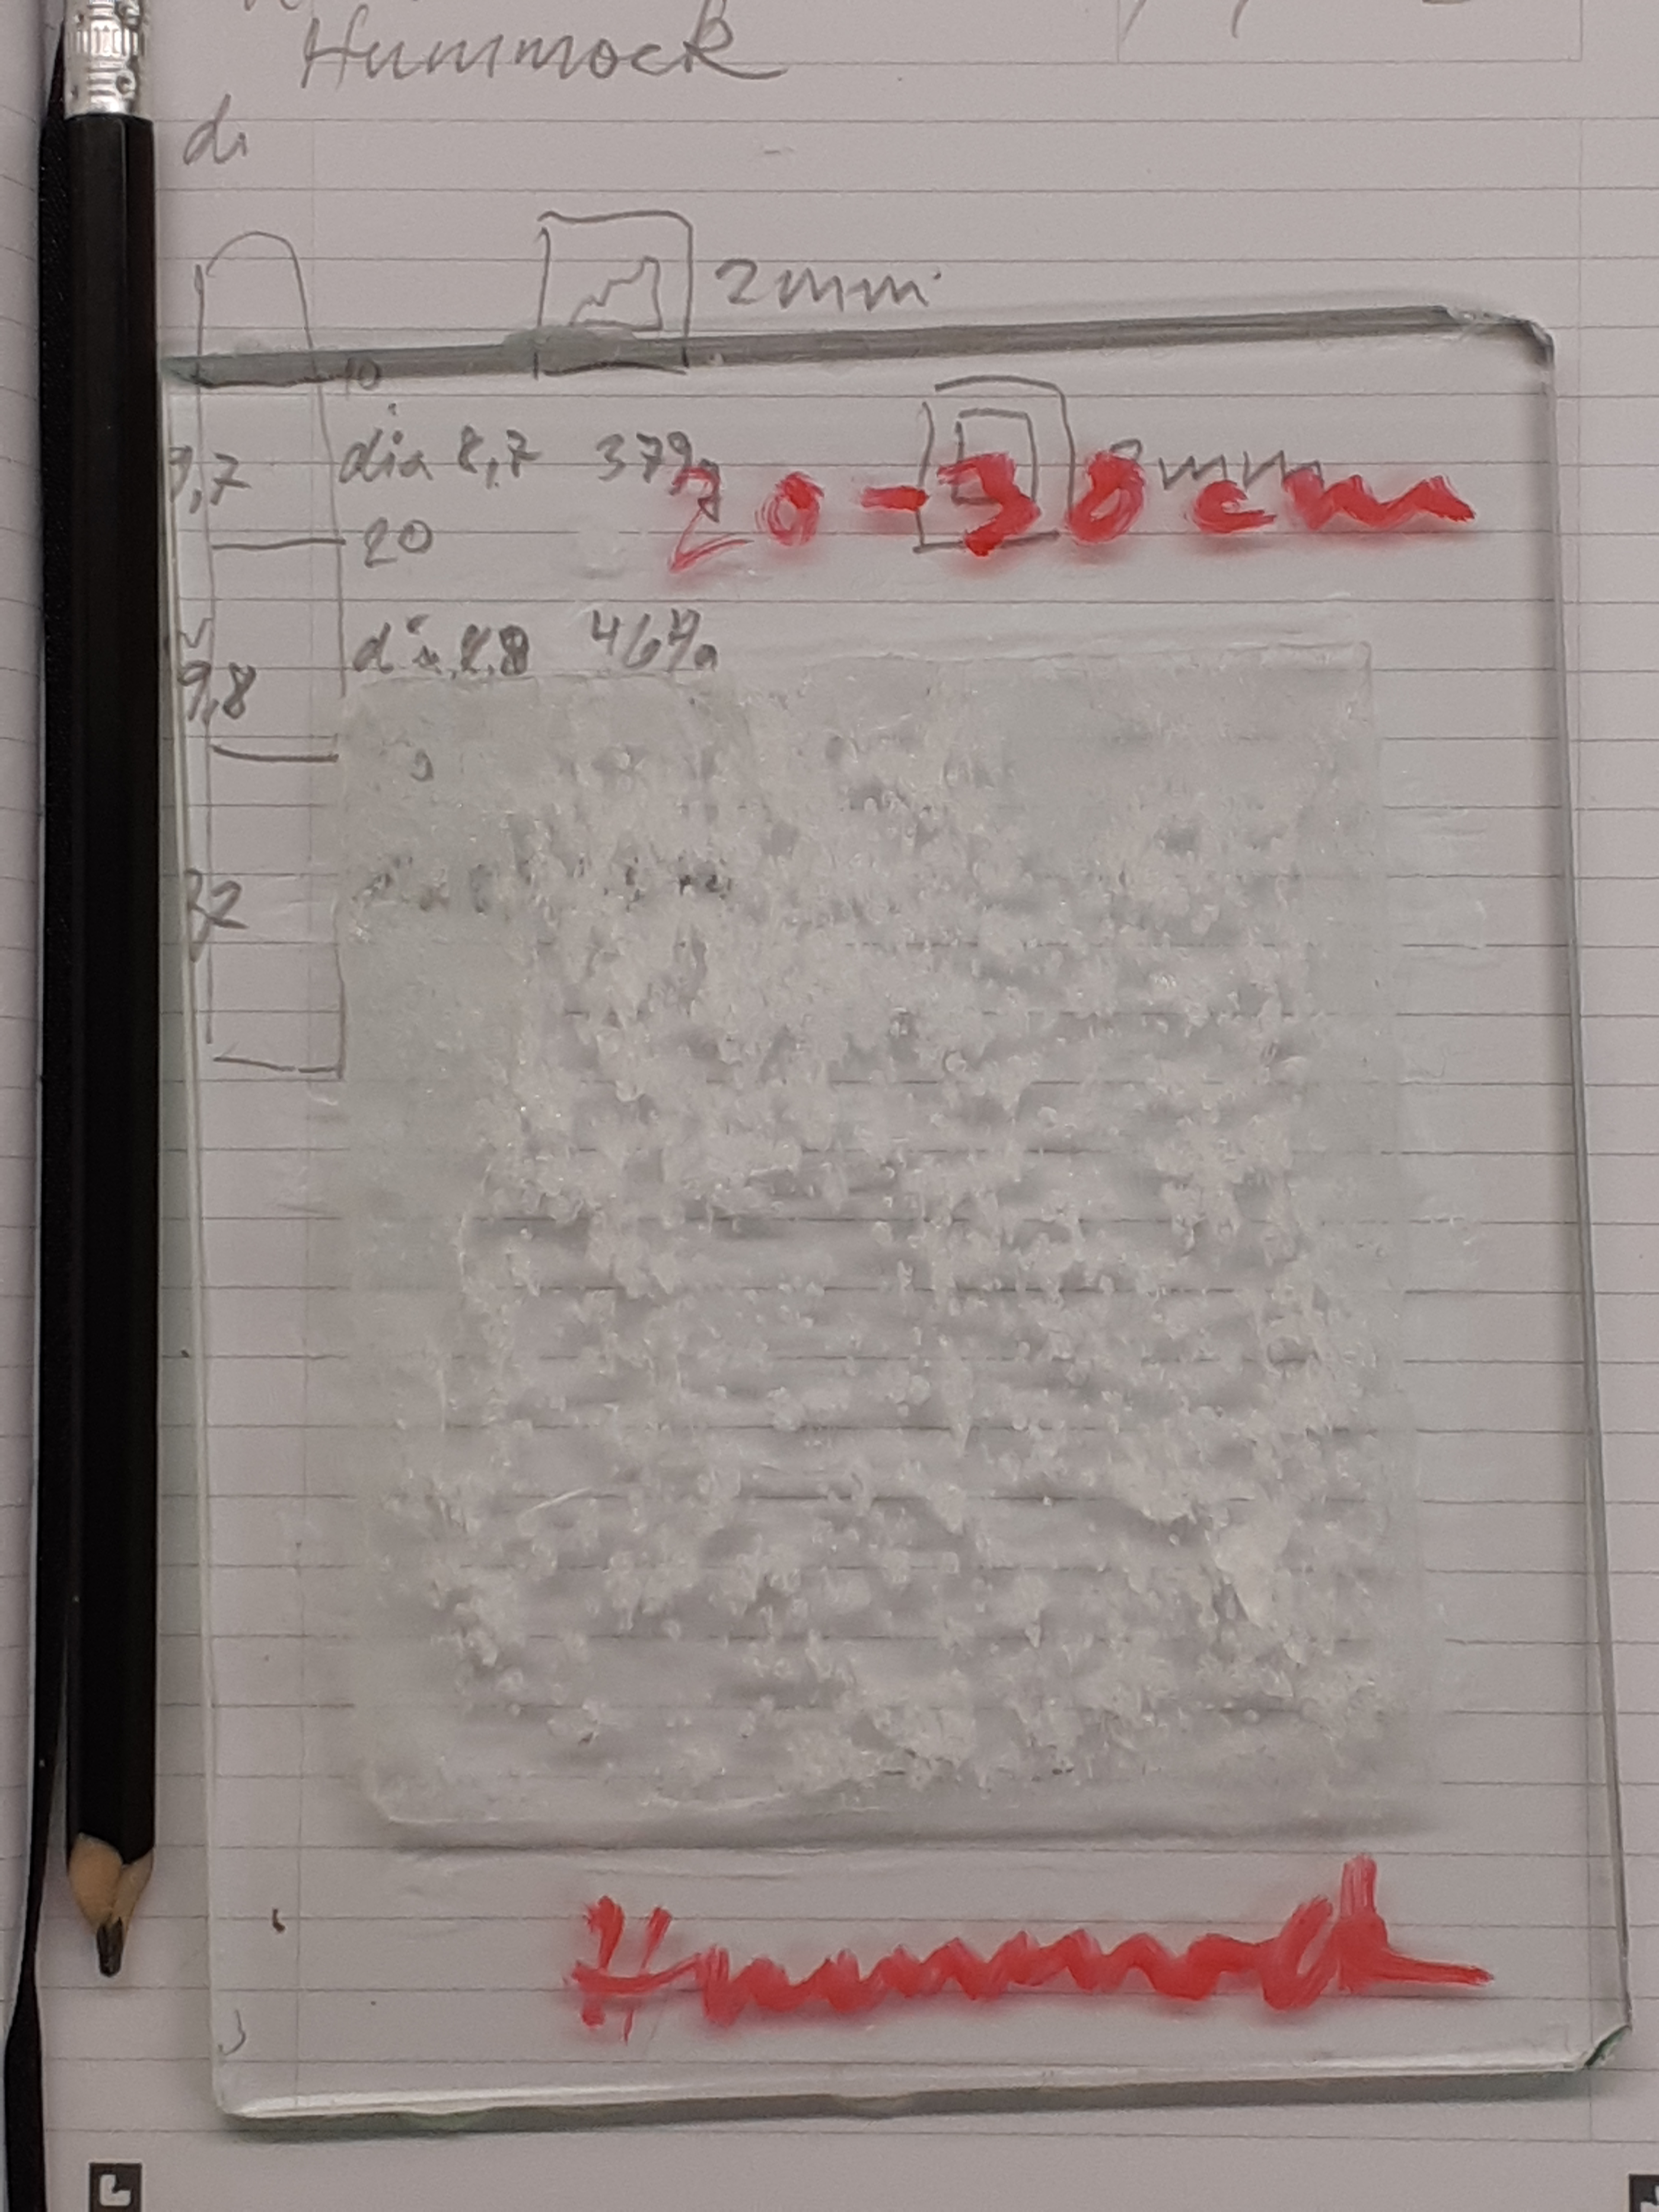 Hummock
di
2mm
10
9,7 dia 8,7 379g
20-30 cm
20
9,8 dia 8.8 464g
Hummock